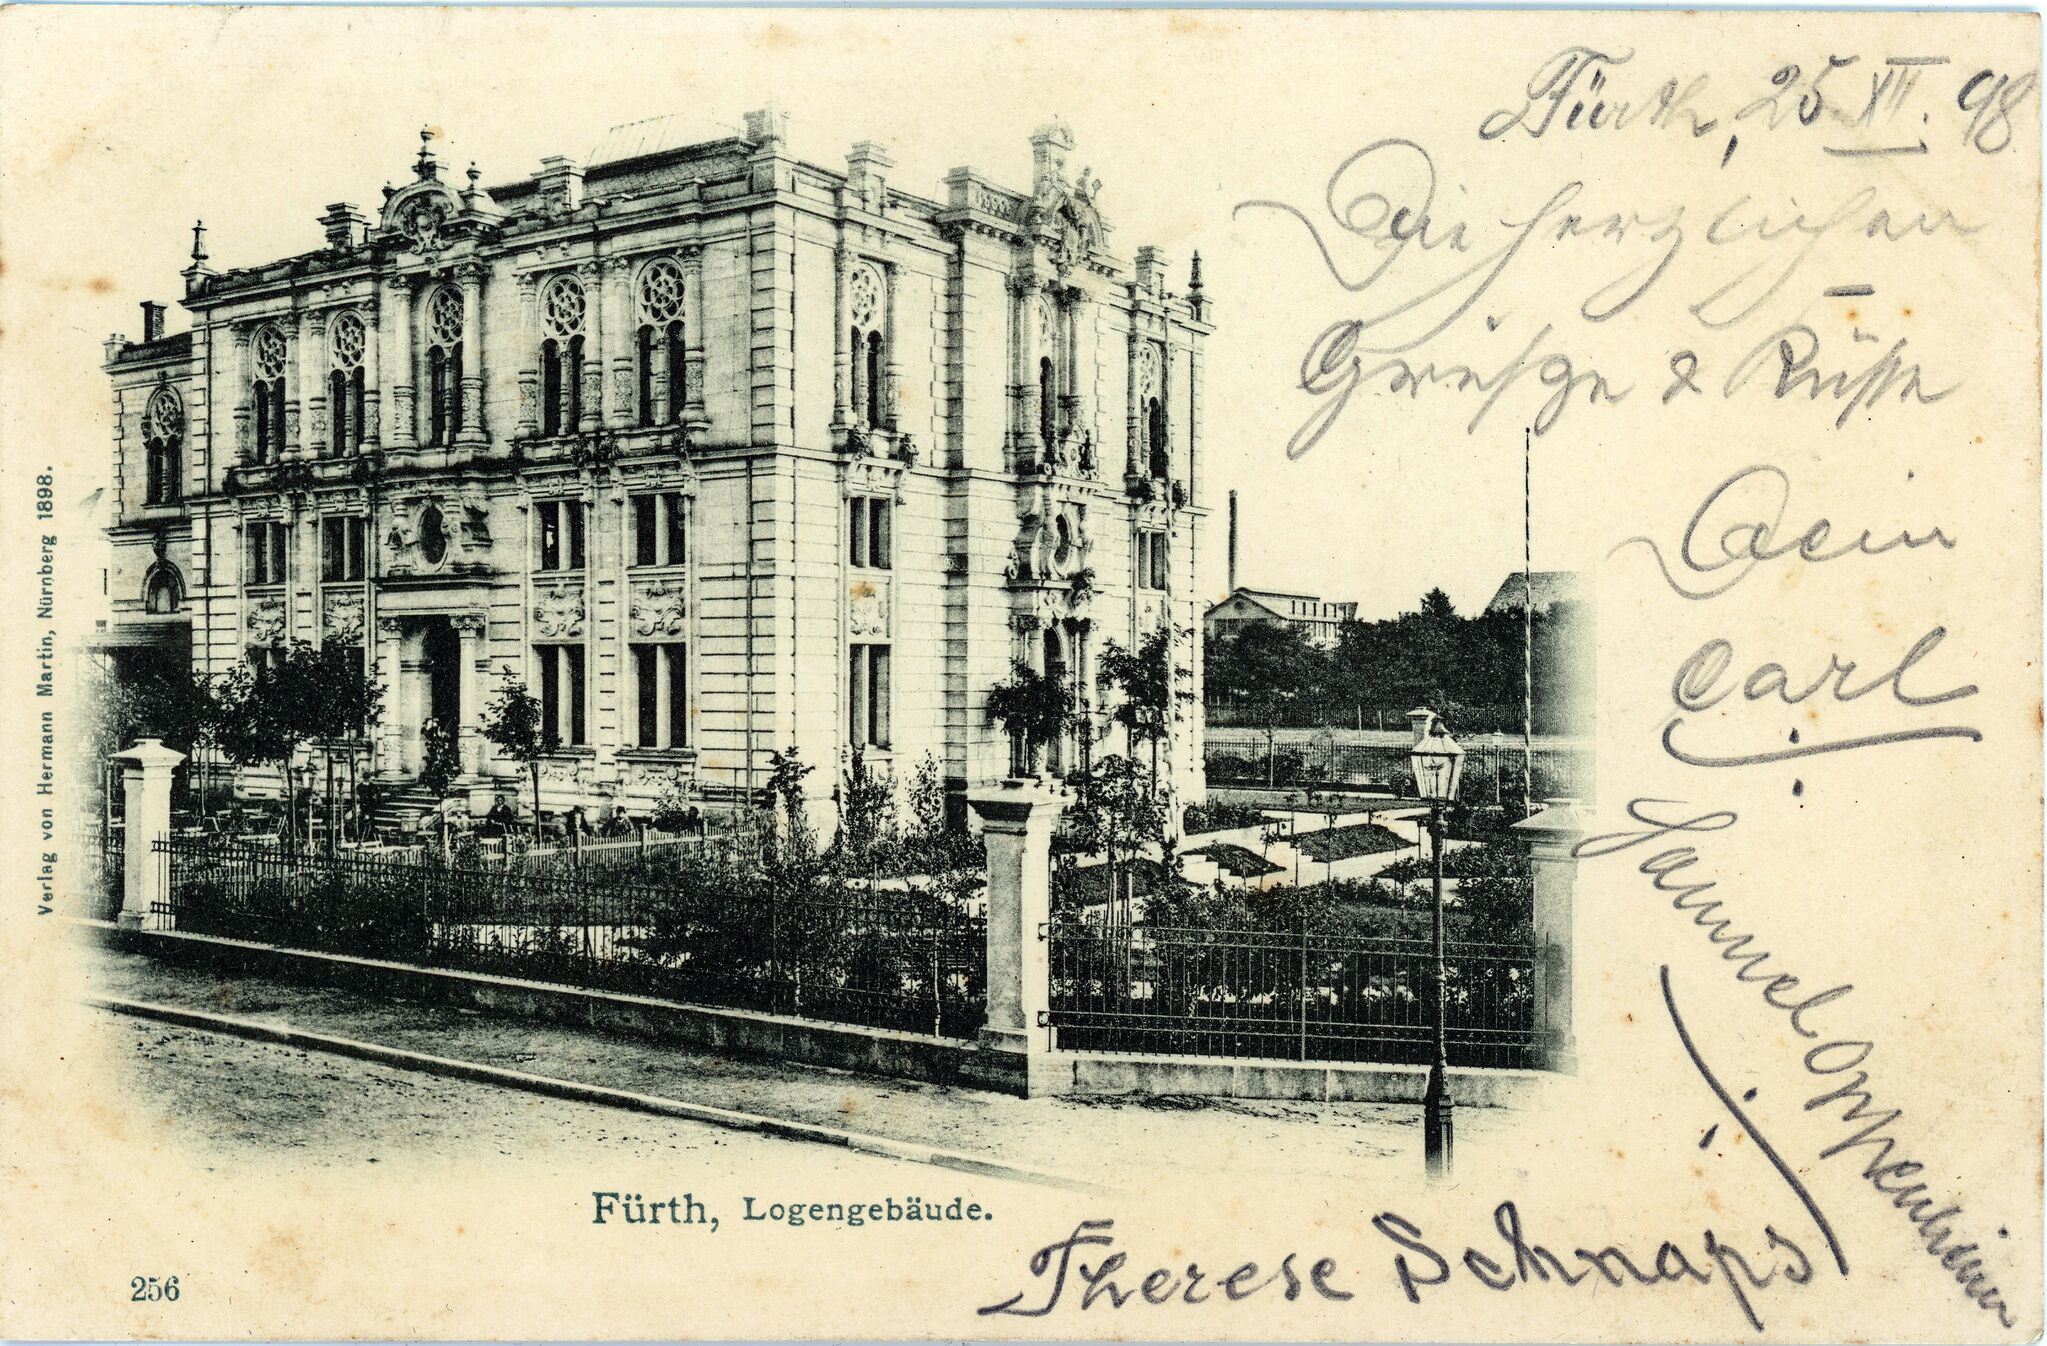 Fürth, 25. XII. 98
Die herzlichen
Grüße & Küsse
Dein
Carl
Sammel Oppenheim
Therese Schnaps
Verlag von Hermann Martin, Nürnberg 1898.
Fürth, Logengebäude.
256